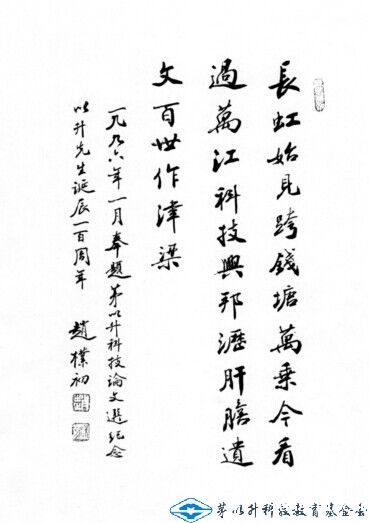 長虹始見跨錢塘萬乘今看
過萬江科技興邦瀝肝膽遺
文百世作津梁
一九九六年一月奉題茅以升科技論文選紀念
以升先生誕辰一百周年
趙樸初
茅以升科技教育基金会